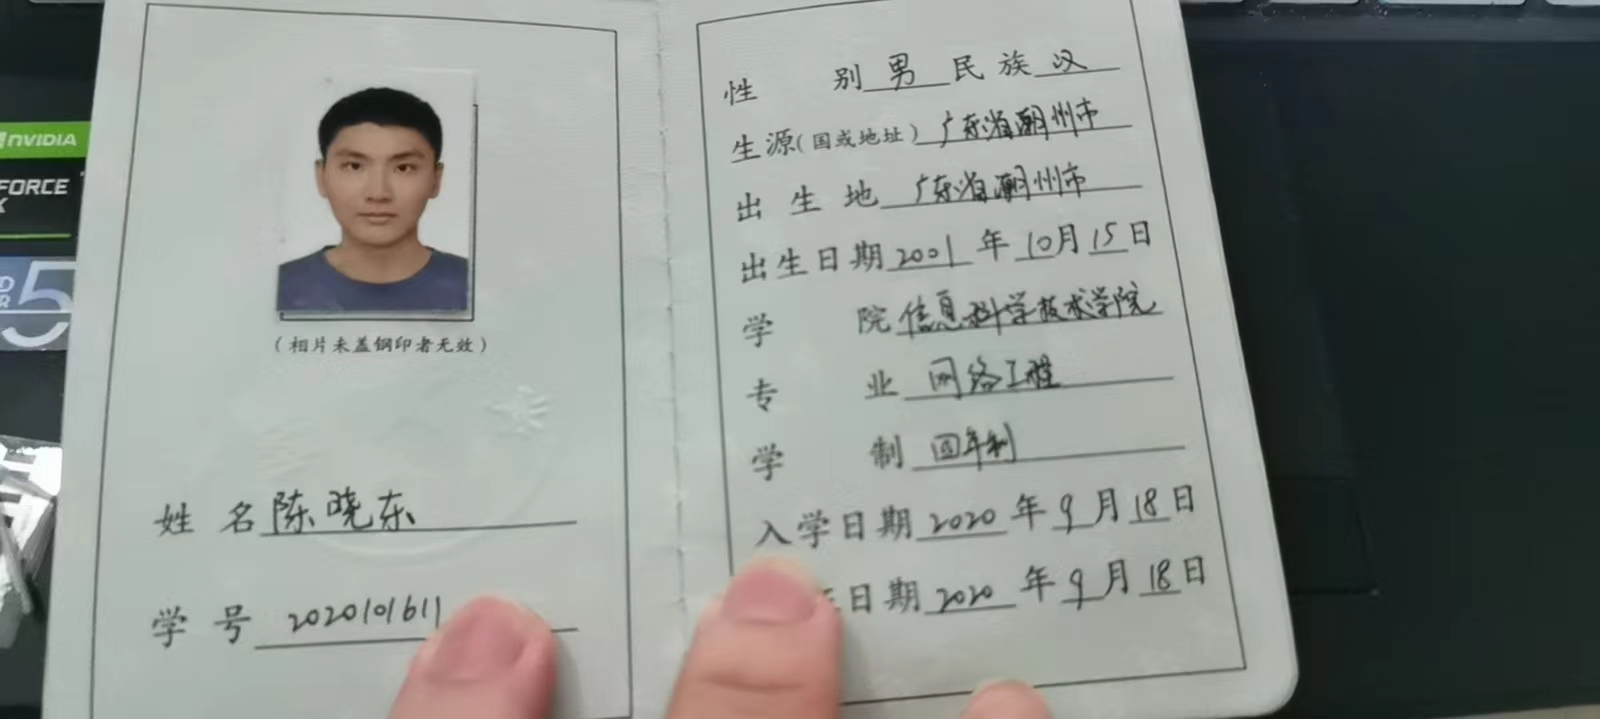 NVIDIA
FORCE
5
(相片未盖钢印者无效)
姓 名 陈晓东
学 号 2020101611
性 别 男 民 族 汉
生源(国或地址) 广东省潮州市
出 生 地 广东省潮州市
出生日期 2001 年 10 月 15 日
学 院 信息科学技术学院
专 业 网络工程
学 制 四年制
入学日期 2020 年 9 月 18 日
日期 2020 年 9 月 18 日